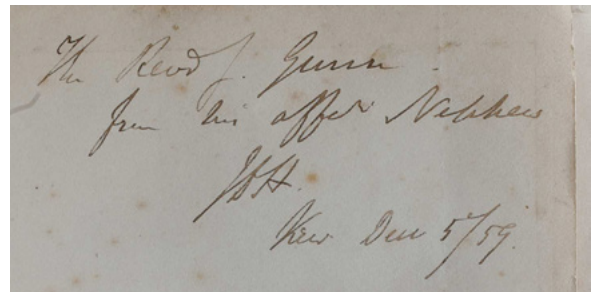 The Revd J. Gunn
from his affect Nephew
JDH.
Kew Decr 5/59.